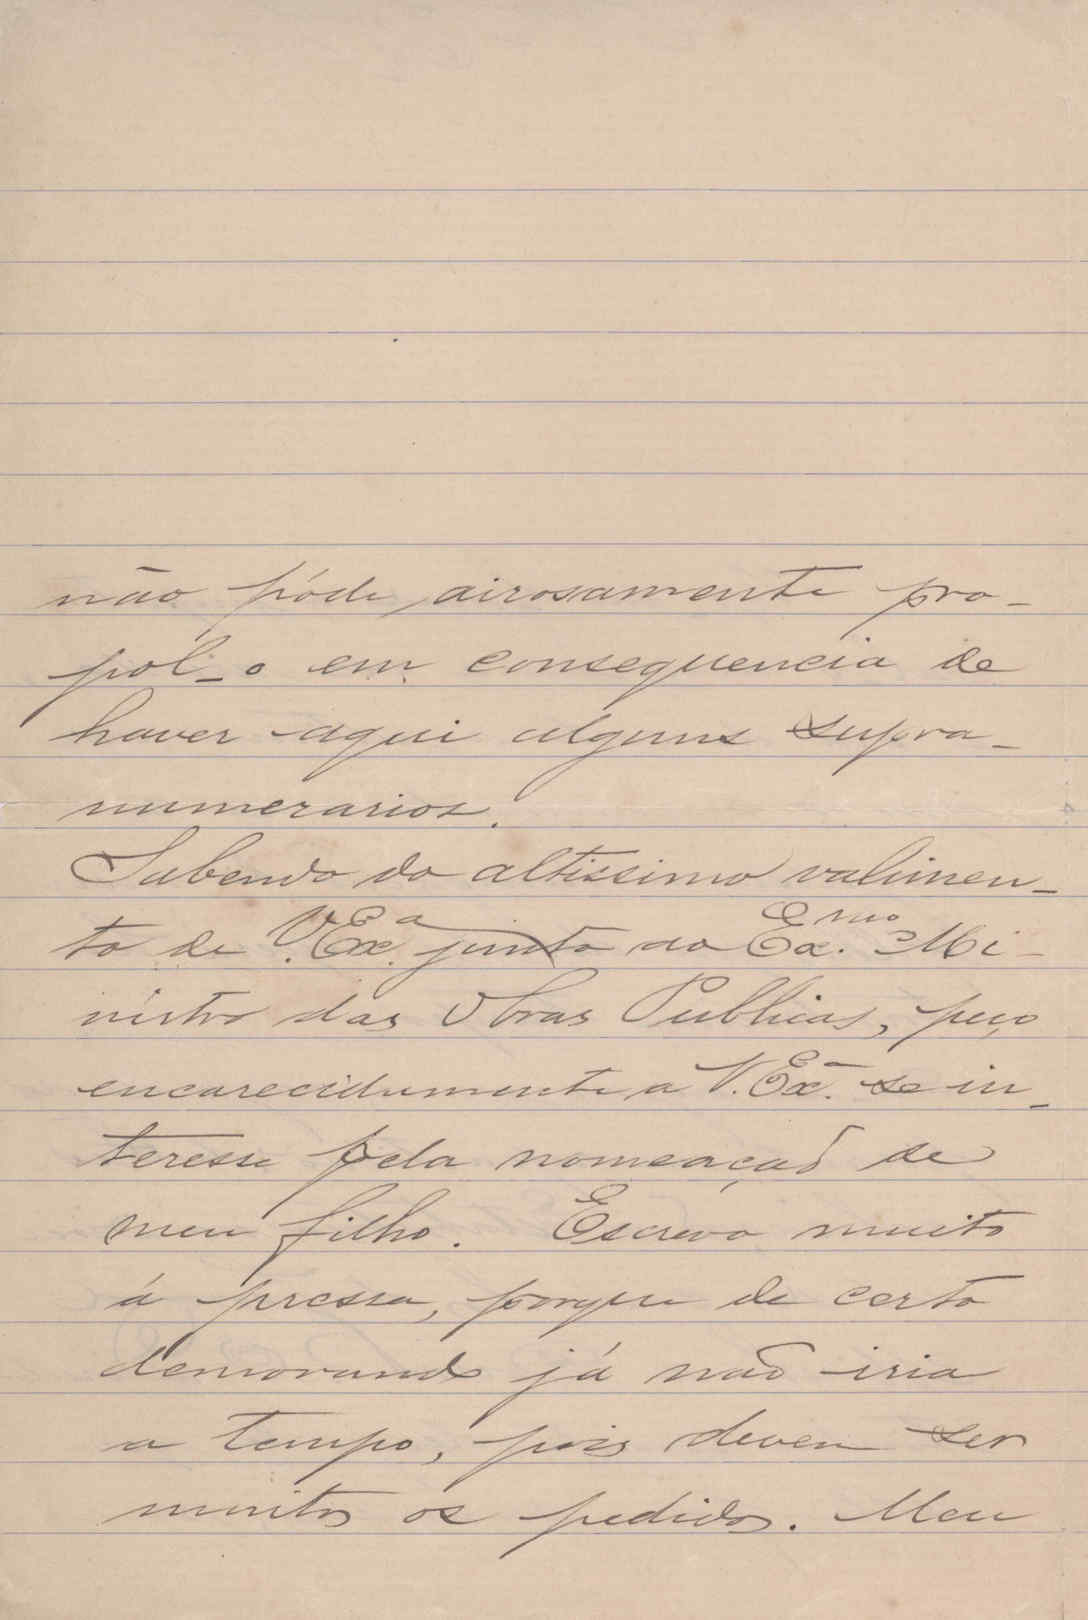 não póde airosamente pro-
pol-o em consequencia de
haver aqui alguns supra-
numerarios.
Sabendo do altissimo valimen-
to de V. Ex.ª junto ao Ex.mo Mi-
nistro das Obras Publicas, peço
encarecidamente a V. Ex.ª se in-
teresse pela nomeação de
meu filho. Escrevo muito
á pressa, porque de certo
demorando já não iria
a tempo, pois devem ser
muitos os pedidos. Meu